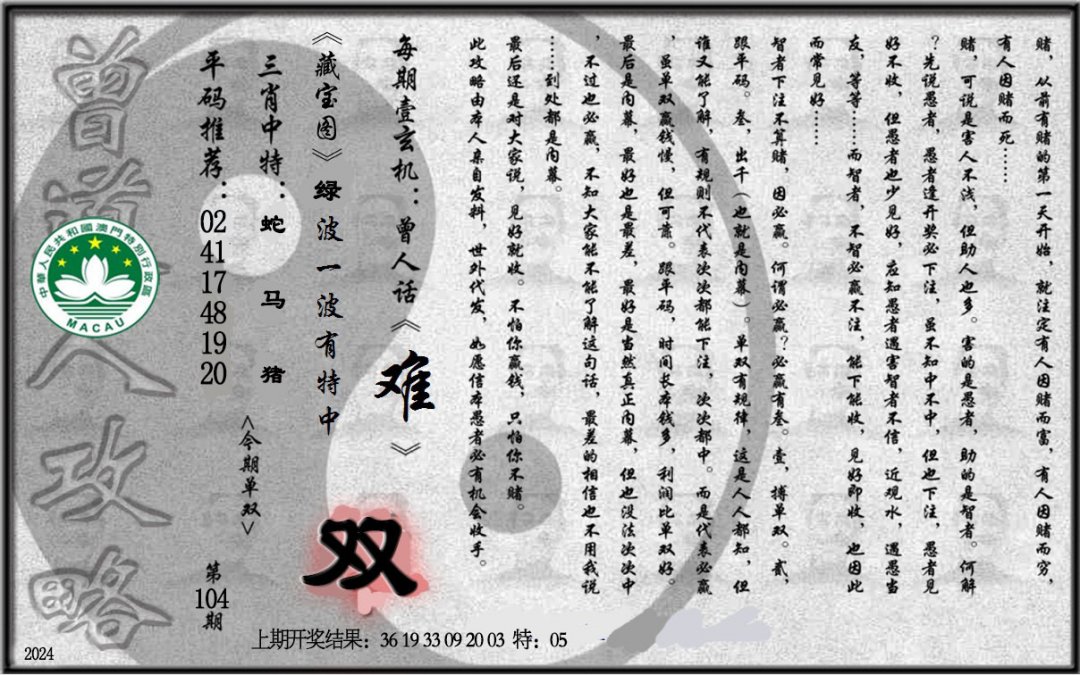 赌，从前有赌的第一天开始，就注定有人因赌而富，有人因赌而穷，
有人因赌而死……
赌，可说是害人不浅，但助人也多。害的是愚者，助的是智者。何解
？先说愚者，愚者逢开奖必下注，虽不知中不中，但也下注，愚者见
好不收，但愚者也少见好，应知愚者遇害智者不信，近观水，遇愚当
友，等等……而智者，不智必赢不注，能下能收，见好即收，也因此
而常见好……
智者下注不算赌，因必赢。何谓必赢？必赢有叁。壹，搏单双。贰，
跟平码。叁，出千（也就是内幕）。单双有规律，这是人人都知，但
谁又能了解，有规则不代表次次都能下注，次次都中。而是代表必赢
，虽单双赢钱慢，但可靠。跟平码，时间长本钱多，利润比单双好。
最后是内幕，最好也是最差，最好是当然真正内幕，但也没法次次中
，不过也必赢，不知大家能不能了解这句话，最差的相信也不用我说
……到处都是内幕。
最后还是对大家说，见好就收。不怕你赢钱，只怕你不赌。
此攻略由本人亲自发料，世外代发，如愿信本愚者必有机会收手。
每期壹玄机：曾人话《难》
《藏宝图》绿波一波有特中
双
三肖中特：蛇 马 猪
<今期单双>
平码推荐：02 41 17 48 19 20
第104期
曾道人攻略
中華人民共和國澳門特別行政區
MACAU
上期开奖结果：36 19 33 09 20 03 特：05
2024